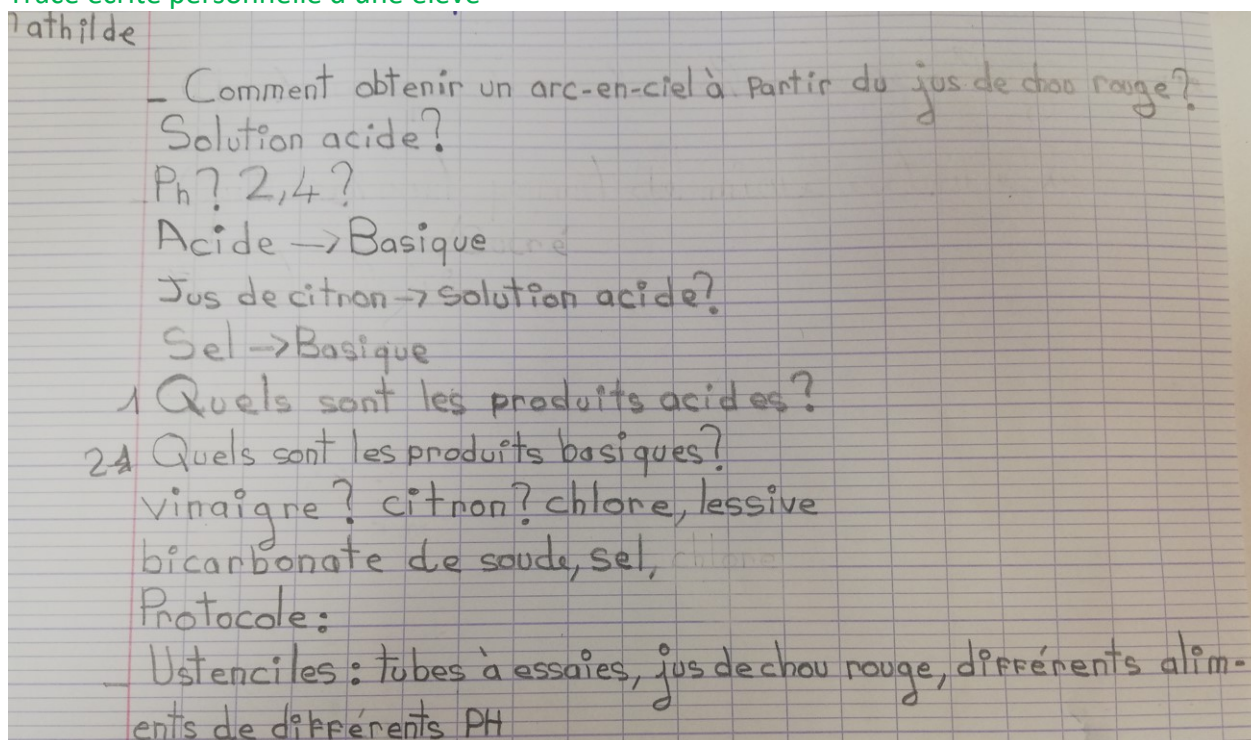 Trace écrite personnelle d'une élève
Mathilde
_ Comment obtenir un arc-en-ciel à partir du jus de chou rouge?
Solution acide?
Ph? 2,4?
Acide -> Basique
Jus de citron -> solution acide?
Sel -> Basique
1 Quels sont les produits acides?
2 Quels sont les produits basiques?
vinaigre? citron? chlore, lessive
bicarbonate de soude, sel,
Protocole:
_ Ustenciles: tubes à essaies, jus de chou rouge, différents alim-
ents de différents PH